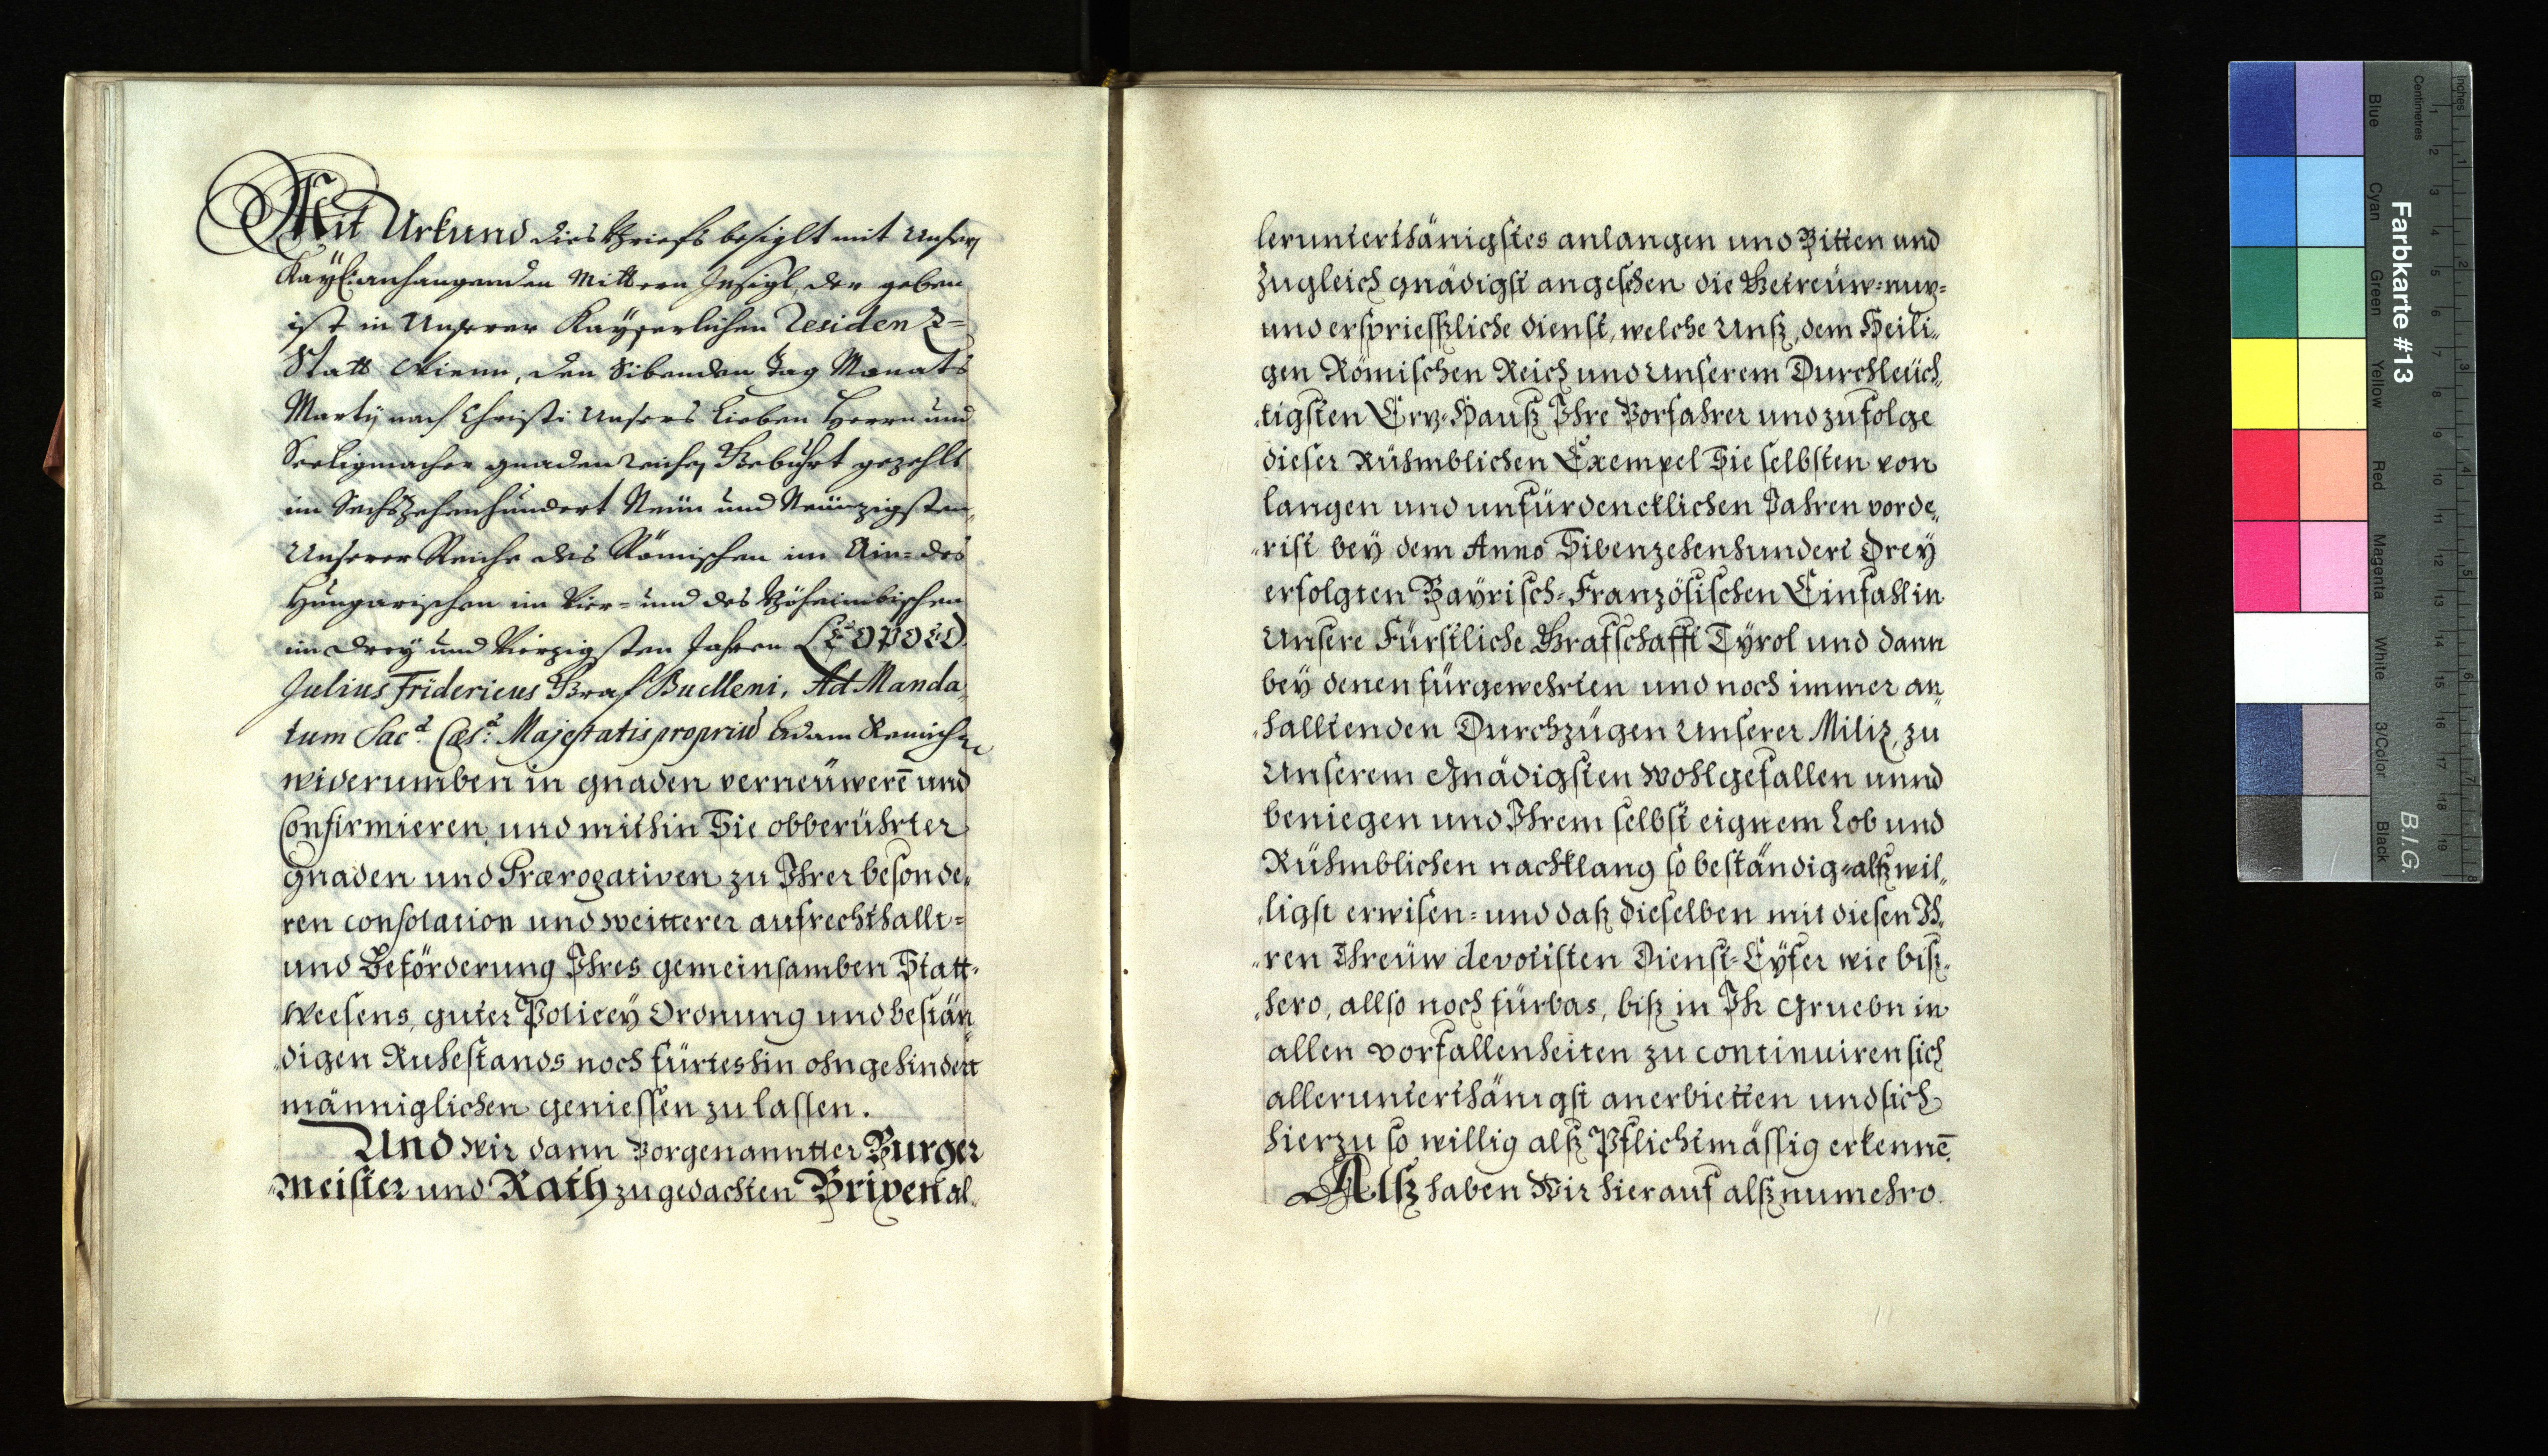 Mit Urkund dies Brieffs besiglt mit Unserm
Kayl: anhangenden Mittern Insigl, der geben
ist in Unserer Kayserlichen Residenz=
Statt Wienn, den Sibenden Tag Monats
Martÿ nach Christi Unsers Lieben Herrn und
Seeligmacher gnadenreicher Gebuhrt gezehlt
im Sechszehenhundert Neün und Neünzigsten,
Unserer Reiche des Römischen im Ain= des
Hungarischen im Vier= und des Böheimbischen
im drey und Vierzigsten Jahren Leopold.
Julius Fridericus Graf Bucelleni, Ad Manda„
tum Sac.ᵃ Cæs:ᵃ Majestatis proprium Adam
widerumben in gnaden verneüwerē und
Confirmieren, und mithin Sie obberührter
gnaden und Prærogativen zu Ihrer besonde„
ren consolation und weitterer aufrechthallt=
und Beförderung Ihres gemeinsamben Statt=
Weesens, guter Policeÿ Ordnung und bestän„
„digen Ruhestands noch fürteshin ohngehindert
männiglichen geniessen zu lassen.
Und wir dann Vorgenanntter Burger
„meister und Rath zu gedachten Brixen al„
leruntertha̋nigstes anlangen und Bitten und
zugleich gnädigst angesehen die Getreüw= nuz=
und ersprießliche dienst, welche Unß, dem Heili„
gen Römischen Reich und Unserem Durchleüch„
„tigsten Erz=Hauß Ihre Vorfahrer und zufolge
dieser Rühmblichen Exempel Sie selbsten von
langen und unfürdencklichen Jahren vorde„
„rist beÿ dem Anno Sibenzehenhundert Dreÿ
erfolgten Baÿrisch=Französischen Einfahl in
Unsere Fürstliche Grafschafft Tÿrol und dann
beÿ denen fürgewehrten und noch immer an„
„halltenden Durchzügen Unserer Miliz, zu
Unserem Gnädigsten Wohlgefallen unnd
beniegen und Ihrem selbst eignem Lob und
Rühmblichen nachklang so beständig=alß wil„
„ligst erwisen= und daß dieselben mit diesen Ih„
„ren Threüw devotisten Dienst=Eÿfer wie biß„
„hero, allso noch fürbas, biß in Ihr Gruebn in
allen vorfallenheiten zu continuiren sich
allerunterthänigst anerbietten und sich
hierzu so willig alß Pflichtmässig erkennē.
Alß haben Wir hierauf alß numehro